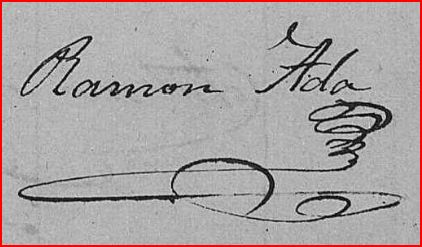 Ramon Ada